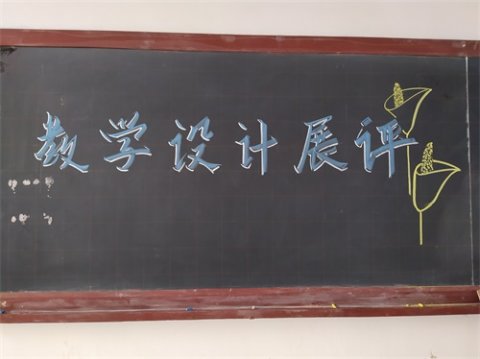 数学设计展评